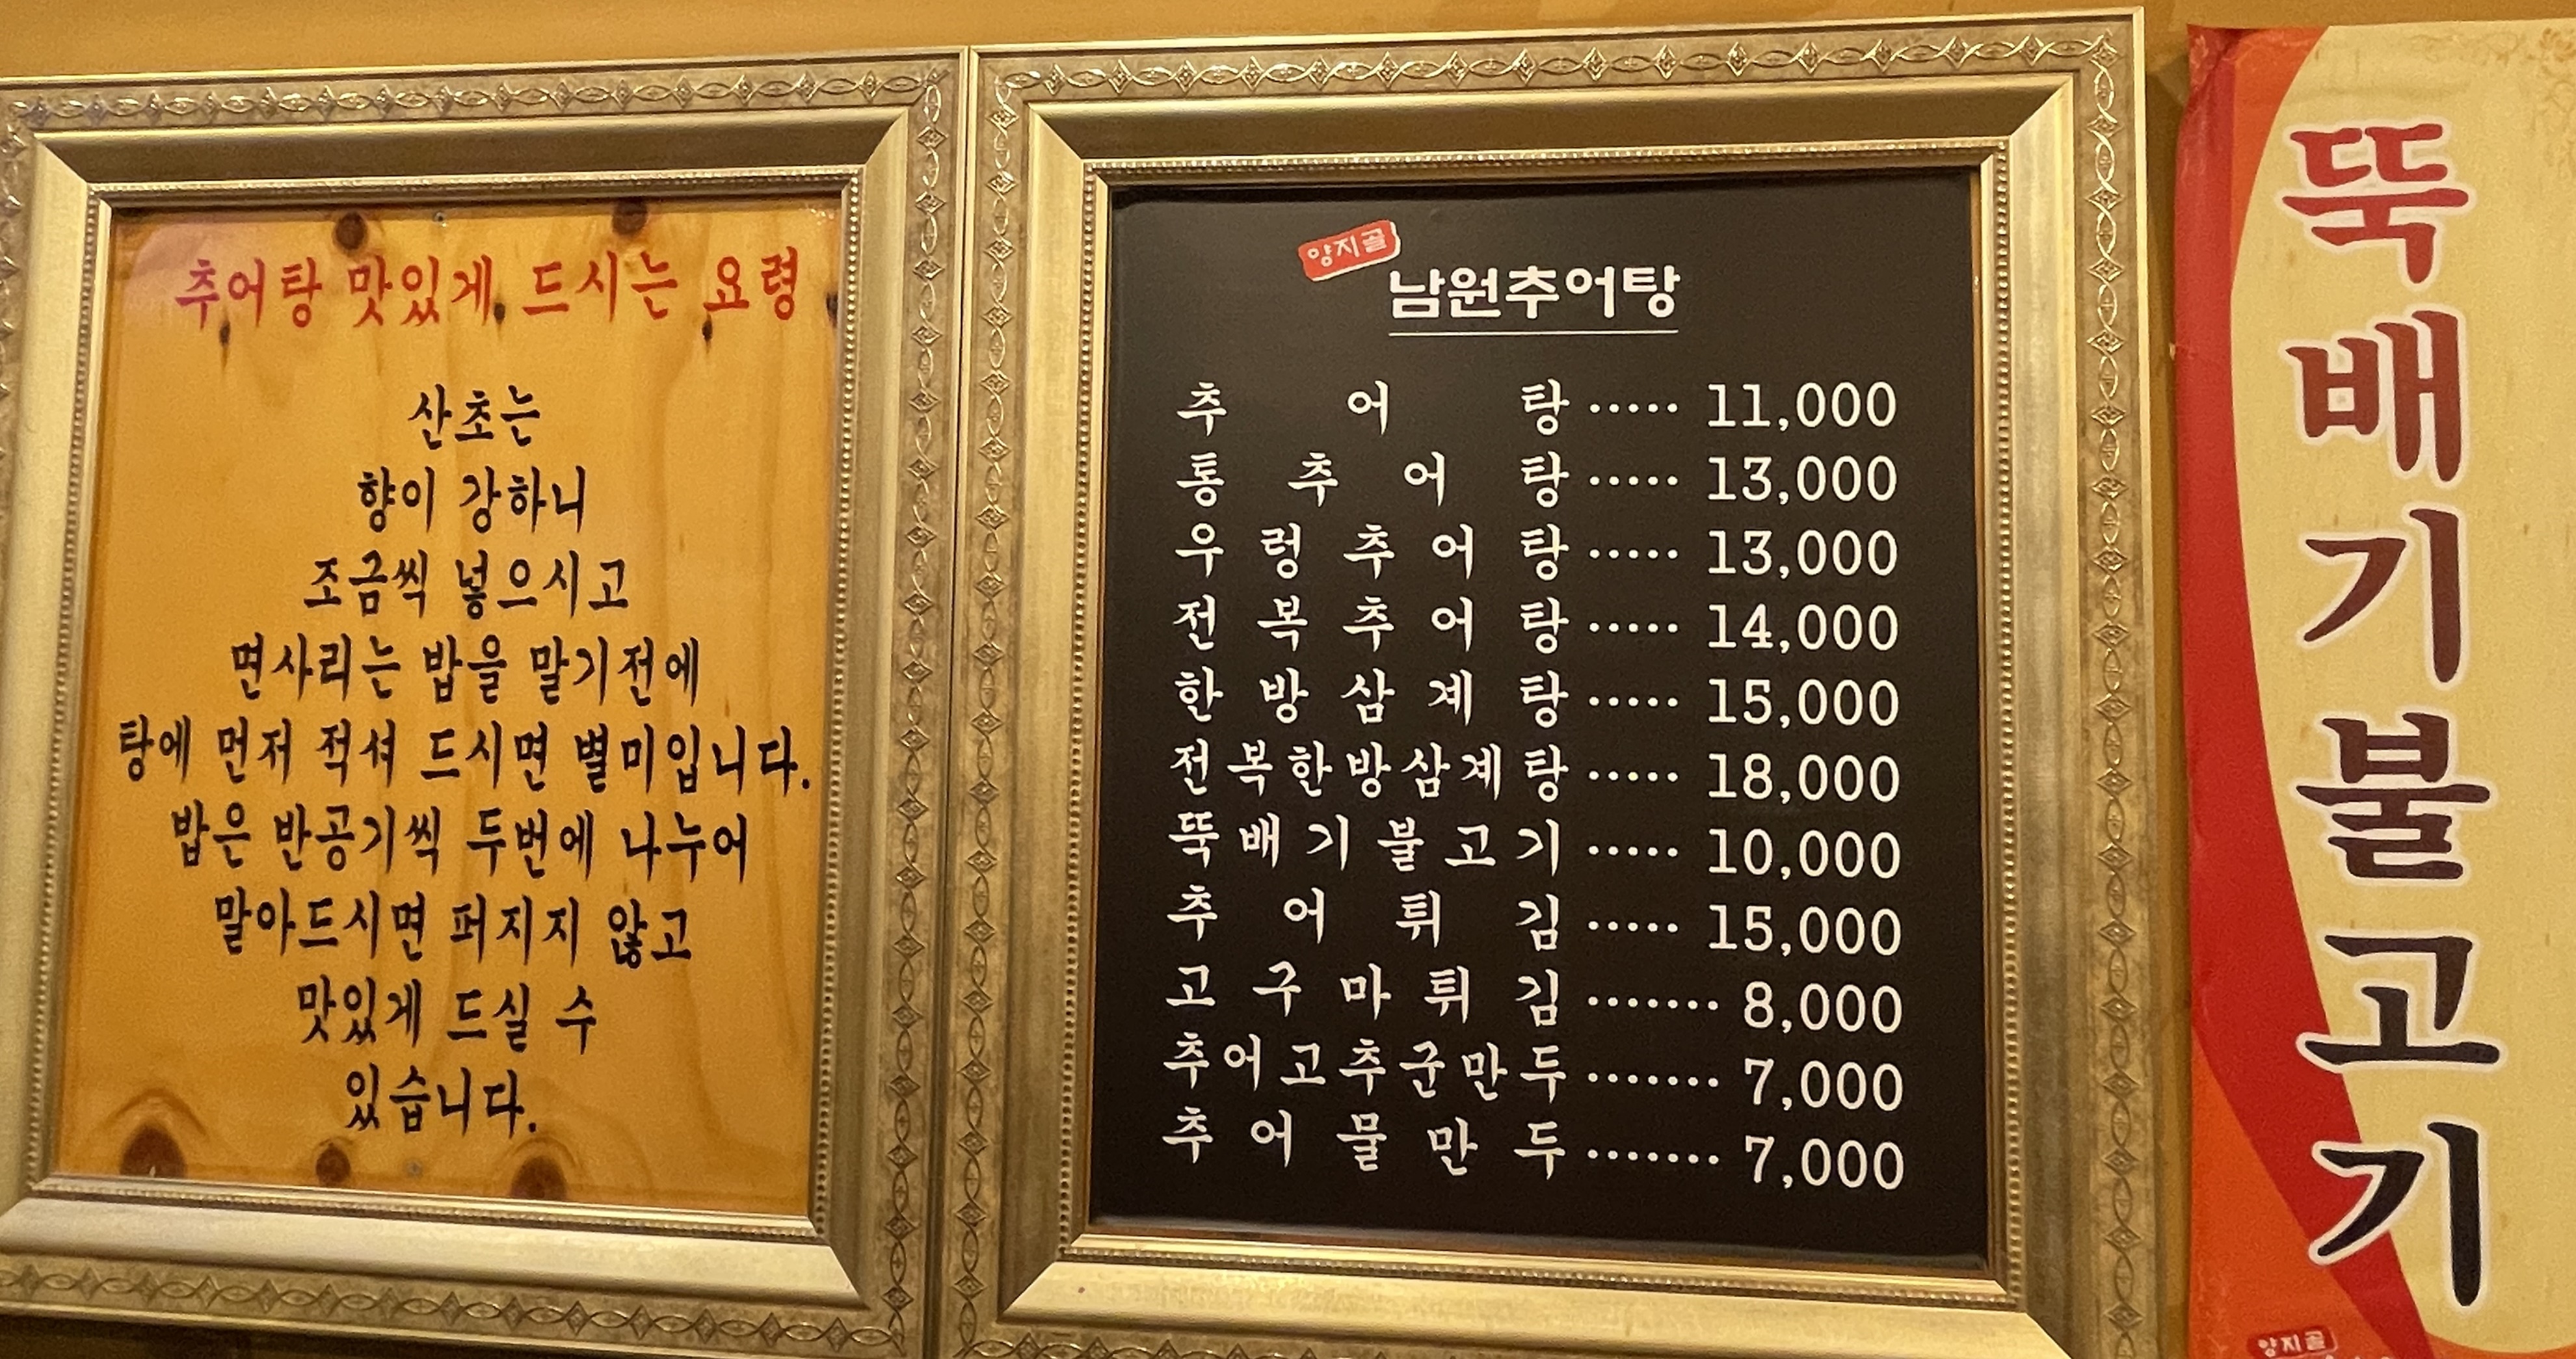 추어탕 맛있게 드시는 요령
산초는
향이 강하니
조금씩 넣으시고
면사리는 밥을 말기전에
탕에 먼저 적셔 드시면 별미입니다.
밥은 반공기씩 두번에 나누어
말아드시면 퍼지지 않고
맛있게 드실 수
있습니다.
양지골
남원추어탕
추어탕 ····· 11,000
통추어탕 ····· 13,000
우렁추어탕 ····· 13,000
전복추어탕 ····· 14,000
한방삼계탕 ····· 15,000
전복한방삼계탕 ····· 18,000
뚝배기불고기 ····· 10,000
추어튀김 ····· 15,000
고구마튀김 ······· 8,000
추어고추군만두 ······· 7,000
추어물만두 ······· 7,000
뚝배기불고기
양지골